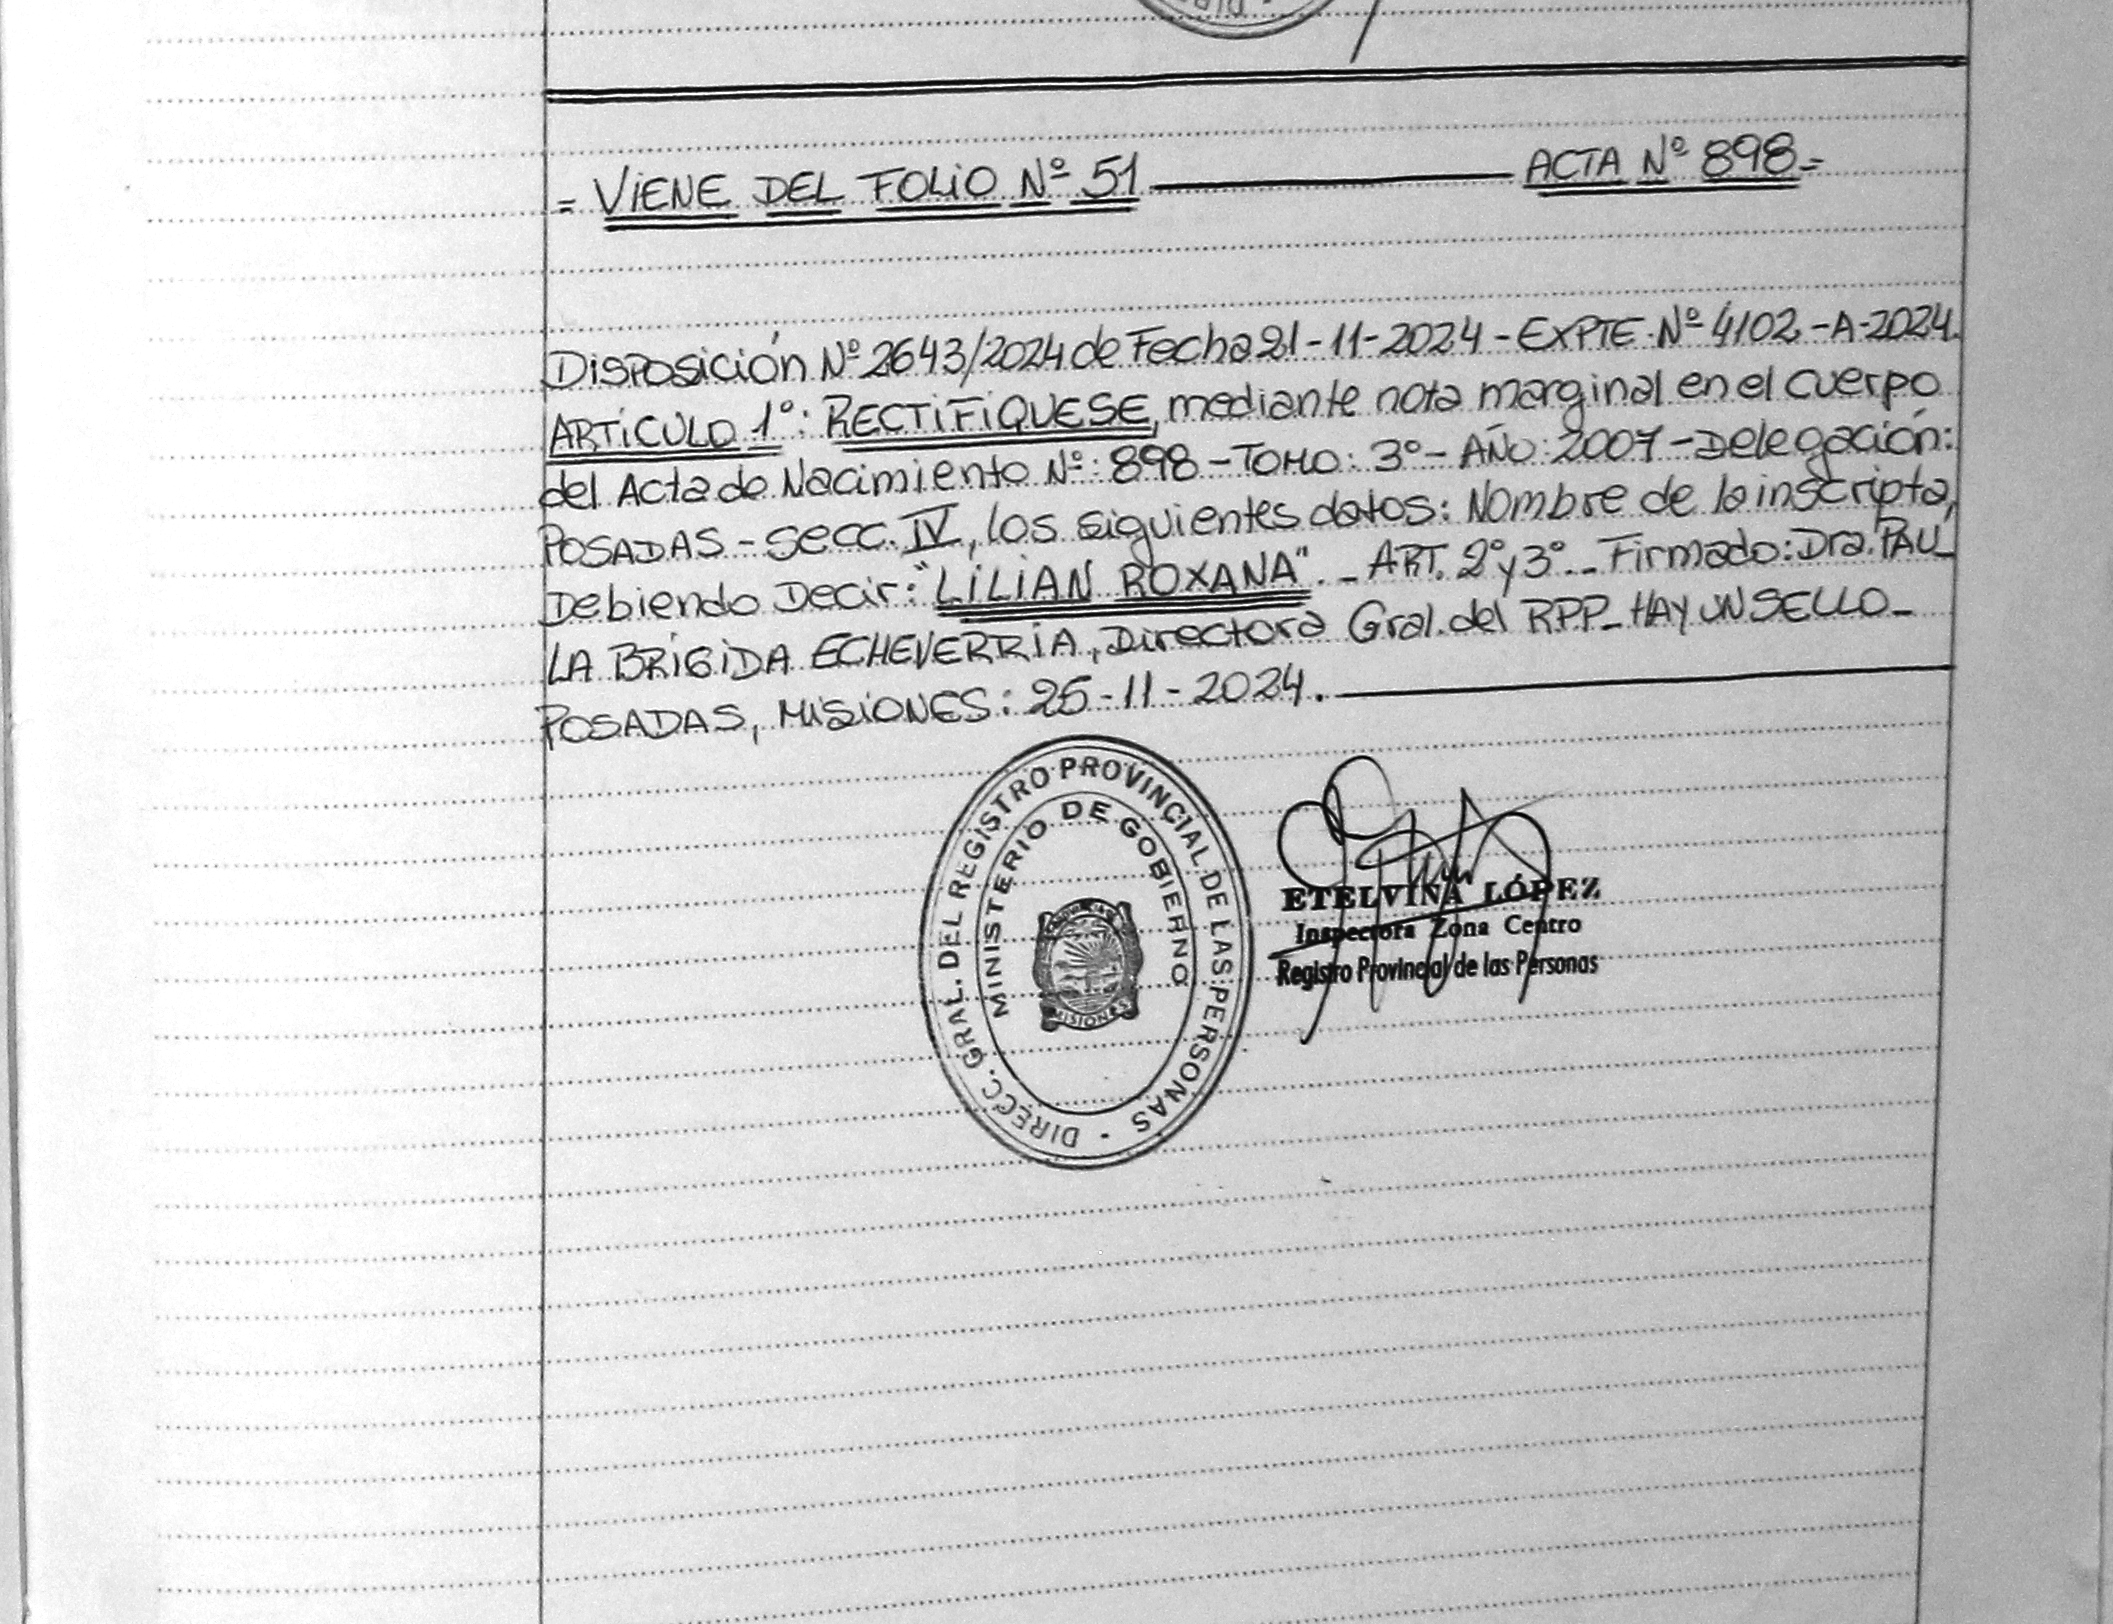 = VIENE DEL FOLIO Nº 51 ACTA Nº 898 =
Disposición Nº 2643/2024 de Fecha 21-11-2024 - EXPTE. Nº 4102-A-2024.
ARTÍCULO 1º: RECTIFÍQUESE, mediante nota marginal en el cuerpo
del Acta de Nacimiento Nº: 898 - TOMO: 3º - AÑO: 2007 - Delegación:
POSADAS - secc. IV, los siguientes datos: Nombre de la inscripta,
Debiendo Decir: "LILIAN ROXANA". - ART. 2º y 3º. - Firmado: Dra. PAU_
LA BRÍGIDA ECHEVERRÍA, Directora Gral. del RPP_ HAY UN SELLO_
POSADAS, MISIONES: 25-11-2024.
DIRECC. GRAL. DEL REGISTRO PROVINCIAL DE LAS PERSONAS -
MINISTERIO DE GOBIERNO
MISIONES
ETELVINA LÓPEZ
Inspectora Zona Centro
Registro Provincial de las Personas